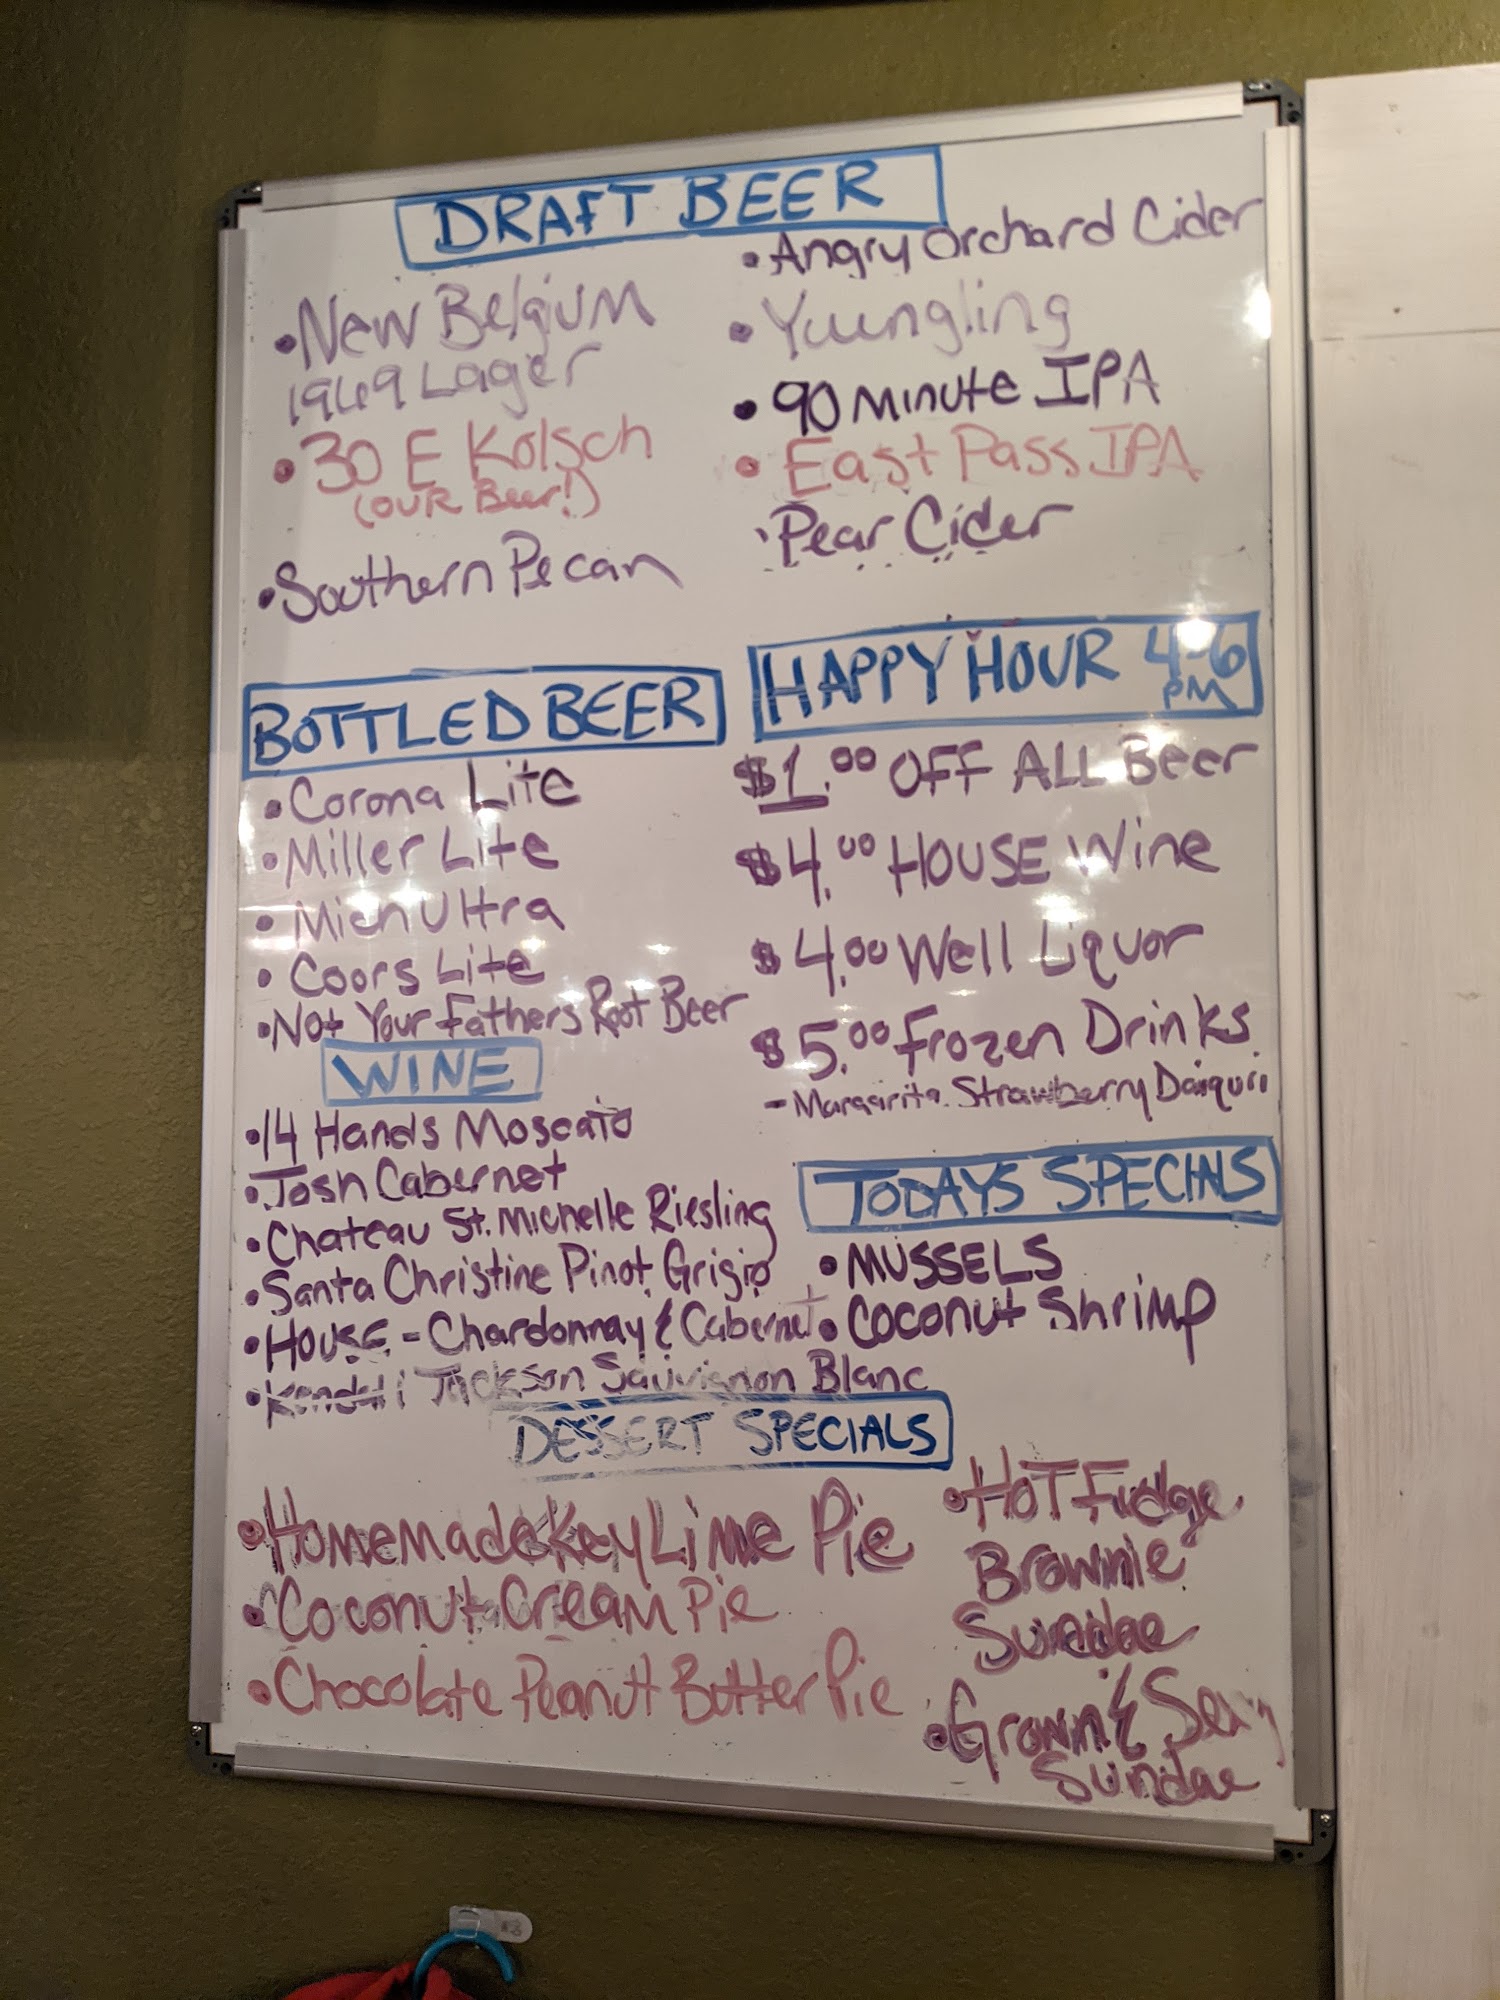 DRAFT BEER
• New Belgium
1969 Lager
• 30 E Kolsch
(OUR Beer!)
• Southern Pecan
• Angry Orchard Cider
• Yuungling
• 90 Minute IPA
• East Pass IPA
• Pear Cider
BOTTLED BEER
• Corona Lite
• Miller Lite
• Mich Ultra
• Coors Lite
• Not Your Fathers Root Beer
WINE
• 14 Hands Moscato
• Josh Cabernet
• Chateau St. Michelle Riesling
• Santa Christine Pinot Grigio
• HOUSE - Chardonnay & Cabernet
• Kendall Jackson Sauvignon Blanc
HAPPY HOUR 4-6
PM
$1.00 OFF ALL Beer
$4.00 HOUSE Wine
$4.00 Well Liquor
$5.00 Frozen Drinks
- Margarita. Strawberry Daiquri
TODAYS SPECIALS
• MUSSELS
• COCONUT Shrimp
DESSERT SPECIALS
• Homemade Key Lime Pie
• Coconut Cream Pie
• Chocolate Peanut Butter Pie
• HOT Fudge
Brownie
Sundae
• Grown & Sexy
Sundae